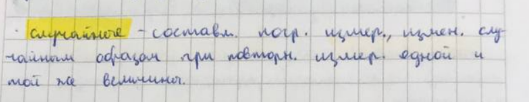 случайные - составл. погр. измер., измен. слу-
чайным образом при повторн. измер. одной и
той же величины.